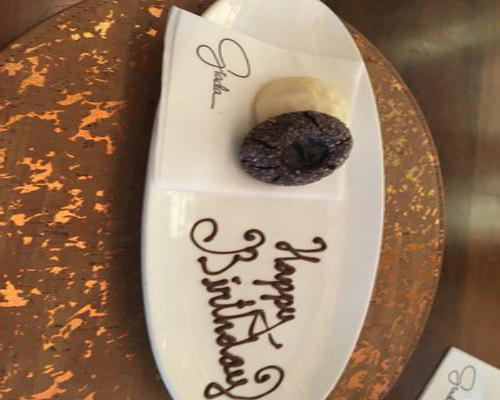 Giada
Happy
Birthday
Giad